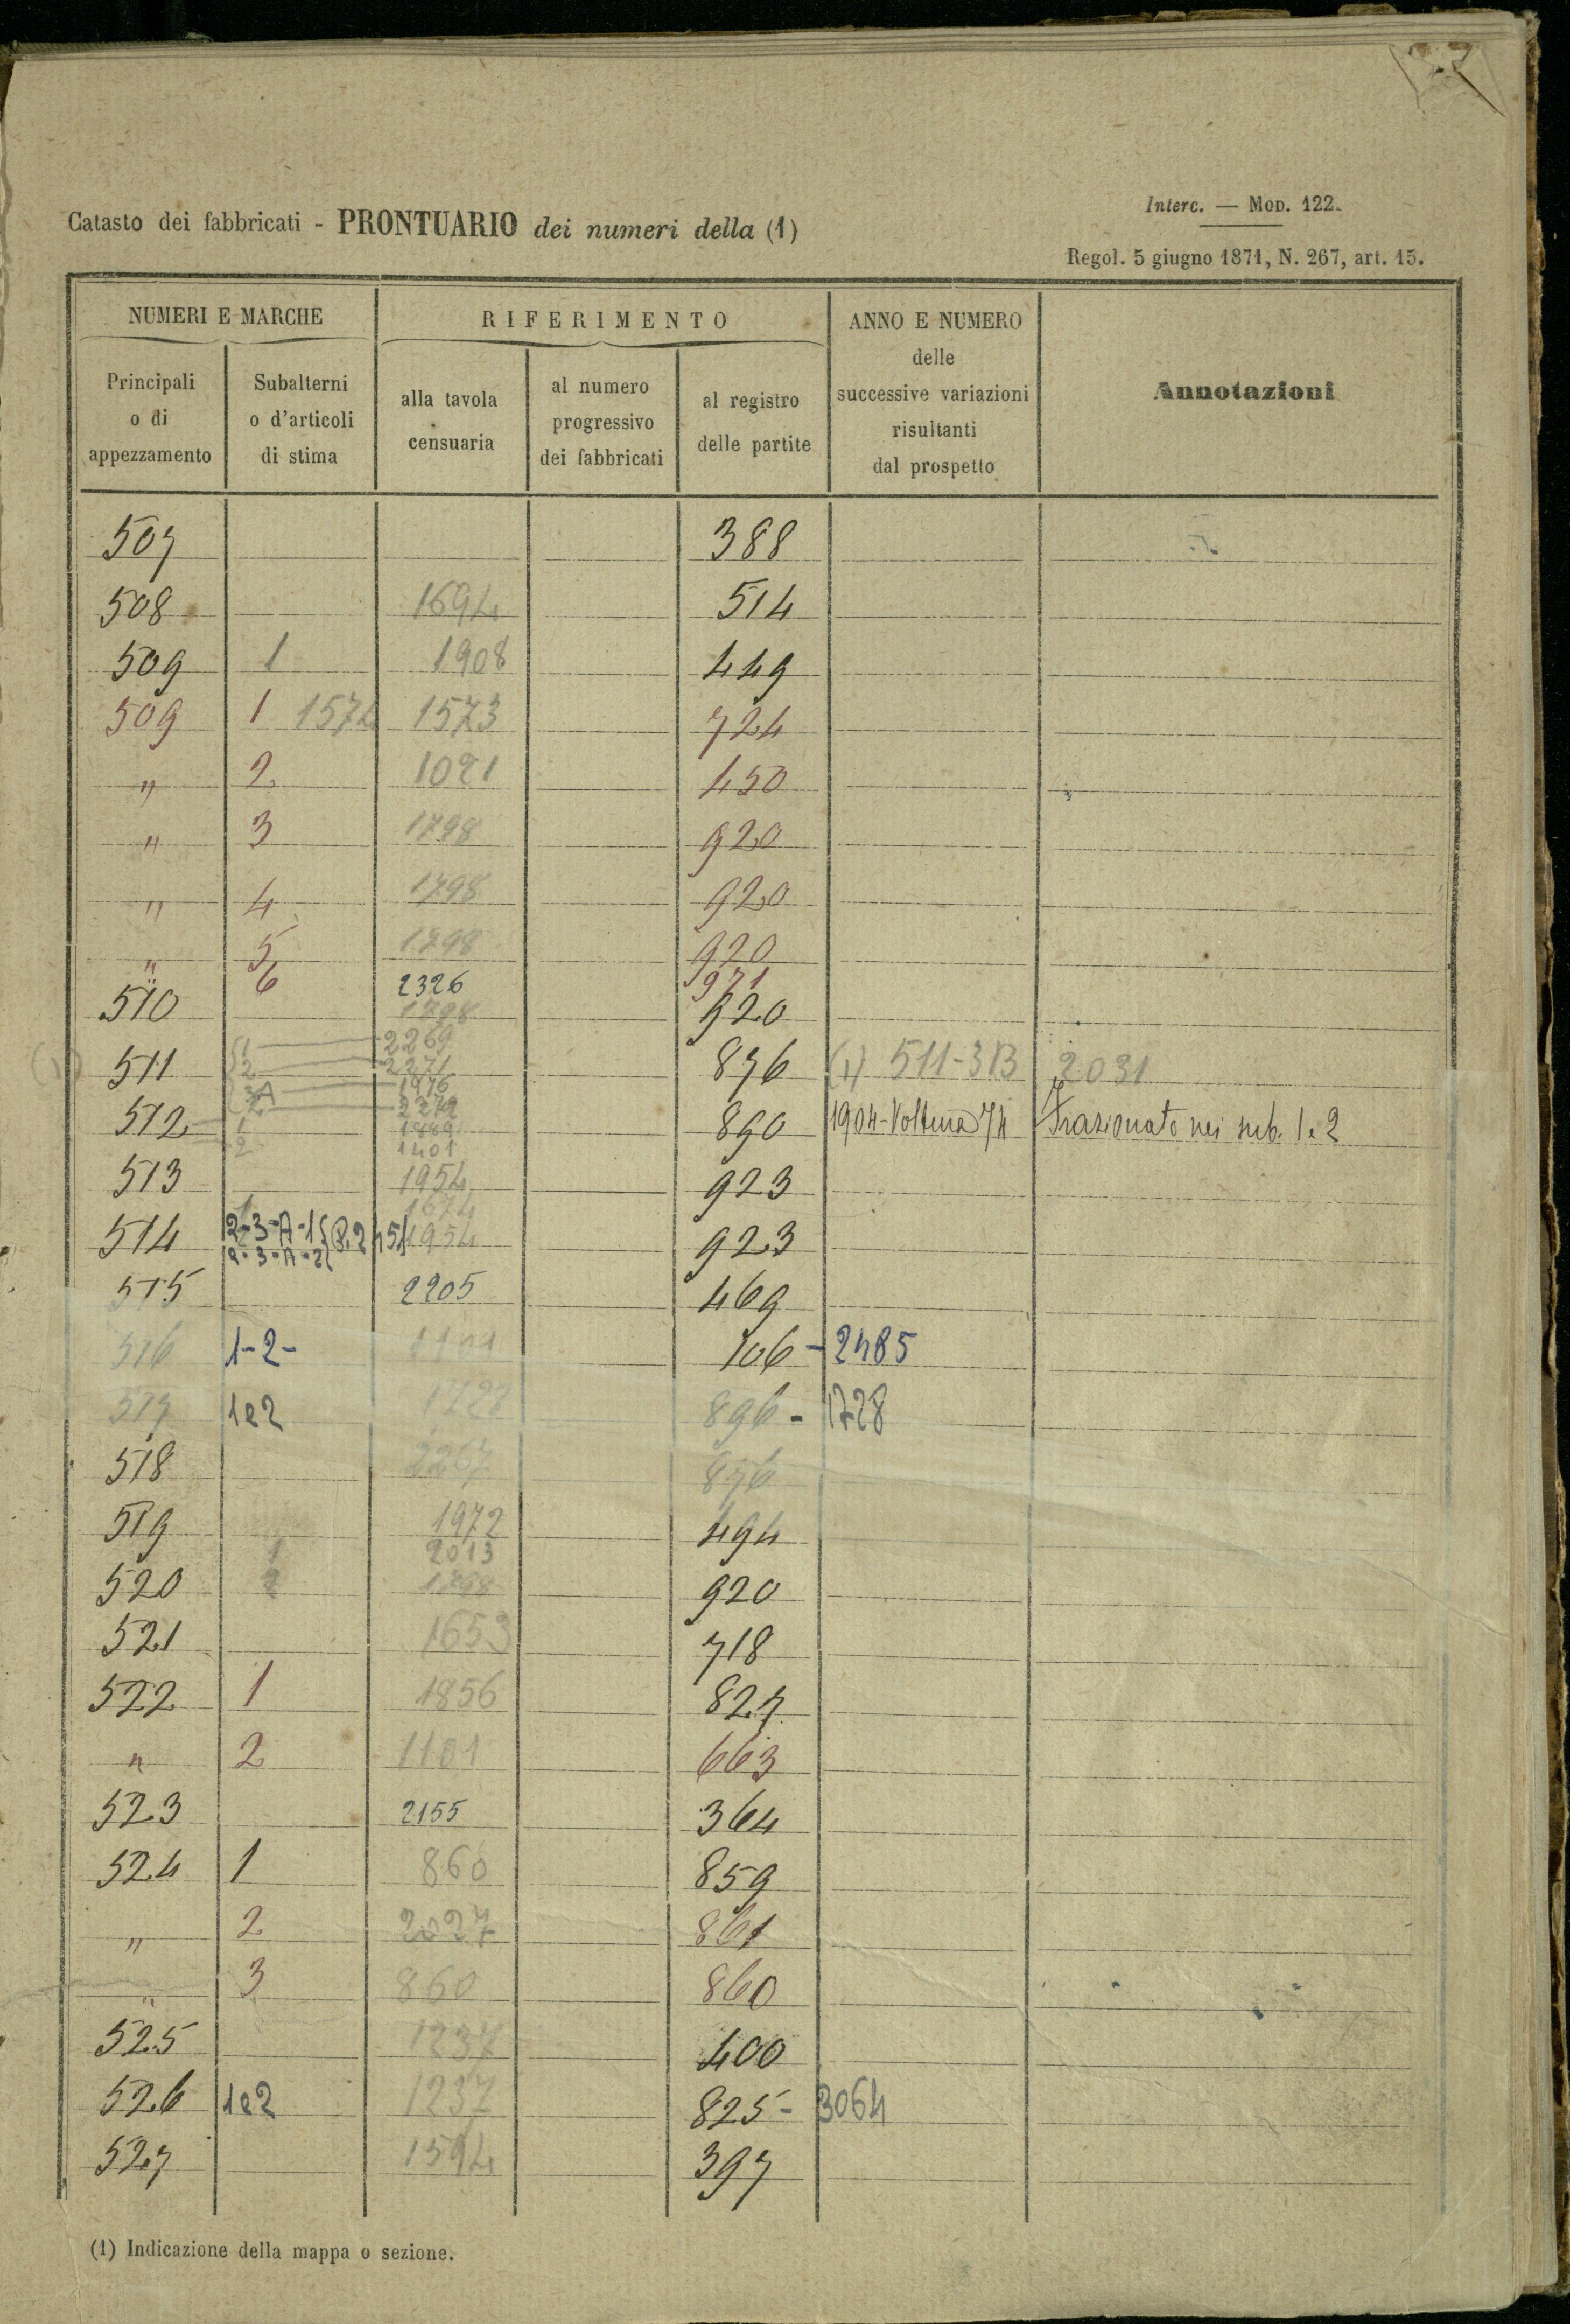 Interc. — Mod. 122.
Catasto dei fabbricati - PRONTUARIO dei numeri della (1)
Regol. 5 giugno 1871, N. 267, art. 15.
NUMERI E MARCHE RIFERIMENTO ANNO E NUMERO delle successive variazioni risultanti dal prospetto Annotazioni
Principali o di appezzamento Subalterni o d'articoli di stima alla tavola censuaria al numero progressivo dei fabbricati al registro delle partite
507 388
508 1694 514
509 1 1908 449
509 1 1574 1573 724
" 2 1021 450
" 3 1798 920
" 4 1798 920
" 5 1798 920
" 6 2326 971
510 1798 920
1 2269
511 2 2271 876 (1) 511-3B 2031
3A 1976
512 890 1904-Voltura 74 Frazionato nei sub. 1 e 2
1
2 1401
513 1954 923
1 1674
514 2-3-A-1 P. 2451 1954 923
2-3-A-2
515 2205 469
516 1-2- 1101 106 - 2485
517 1e2 1728 896 - 1728
518 2267 876
519 1972 494
1 2013
520 2 1798 920
521 1653 718
522 1 1856 827
" 2 1101 663
523 2155 364
524 1 860 859
" 2 2027 861
" 3 860 860
525 1237 400
526 1e2 1237 825 - 3064
527 1594 397
(1) Indicazione della mappa o sezione.